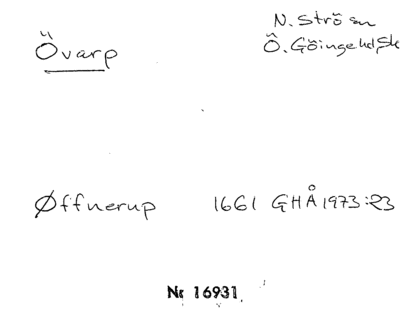 Övarp
N. Strö sn
Ö. Göinge hd, Sk
Øffnerup 1661 GHÅ 1973:23
Nr 16931